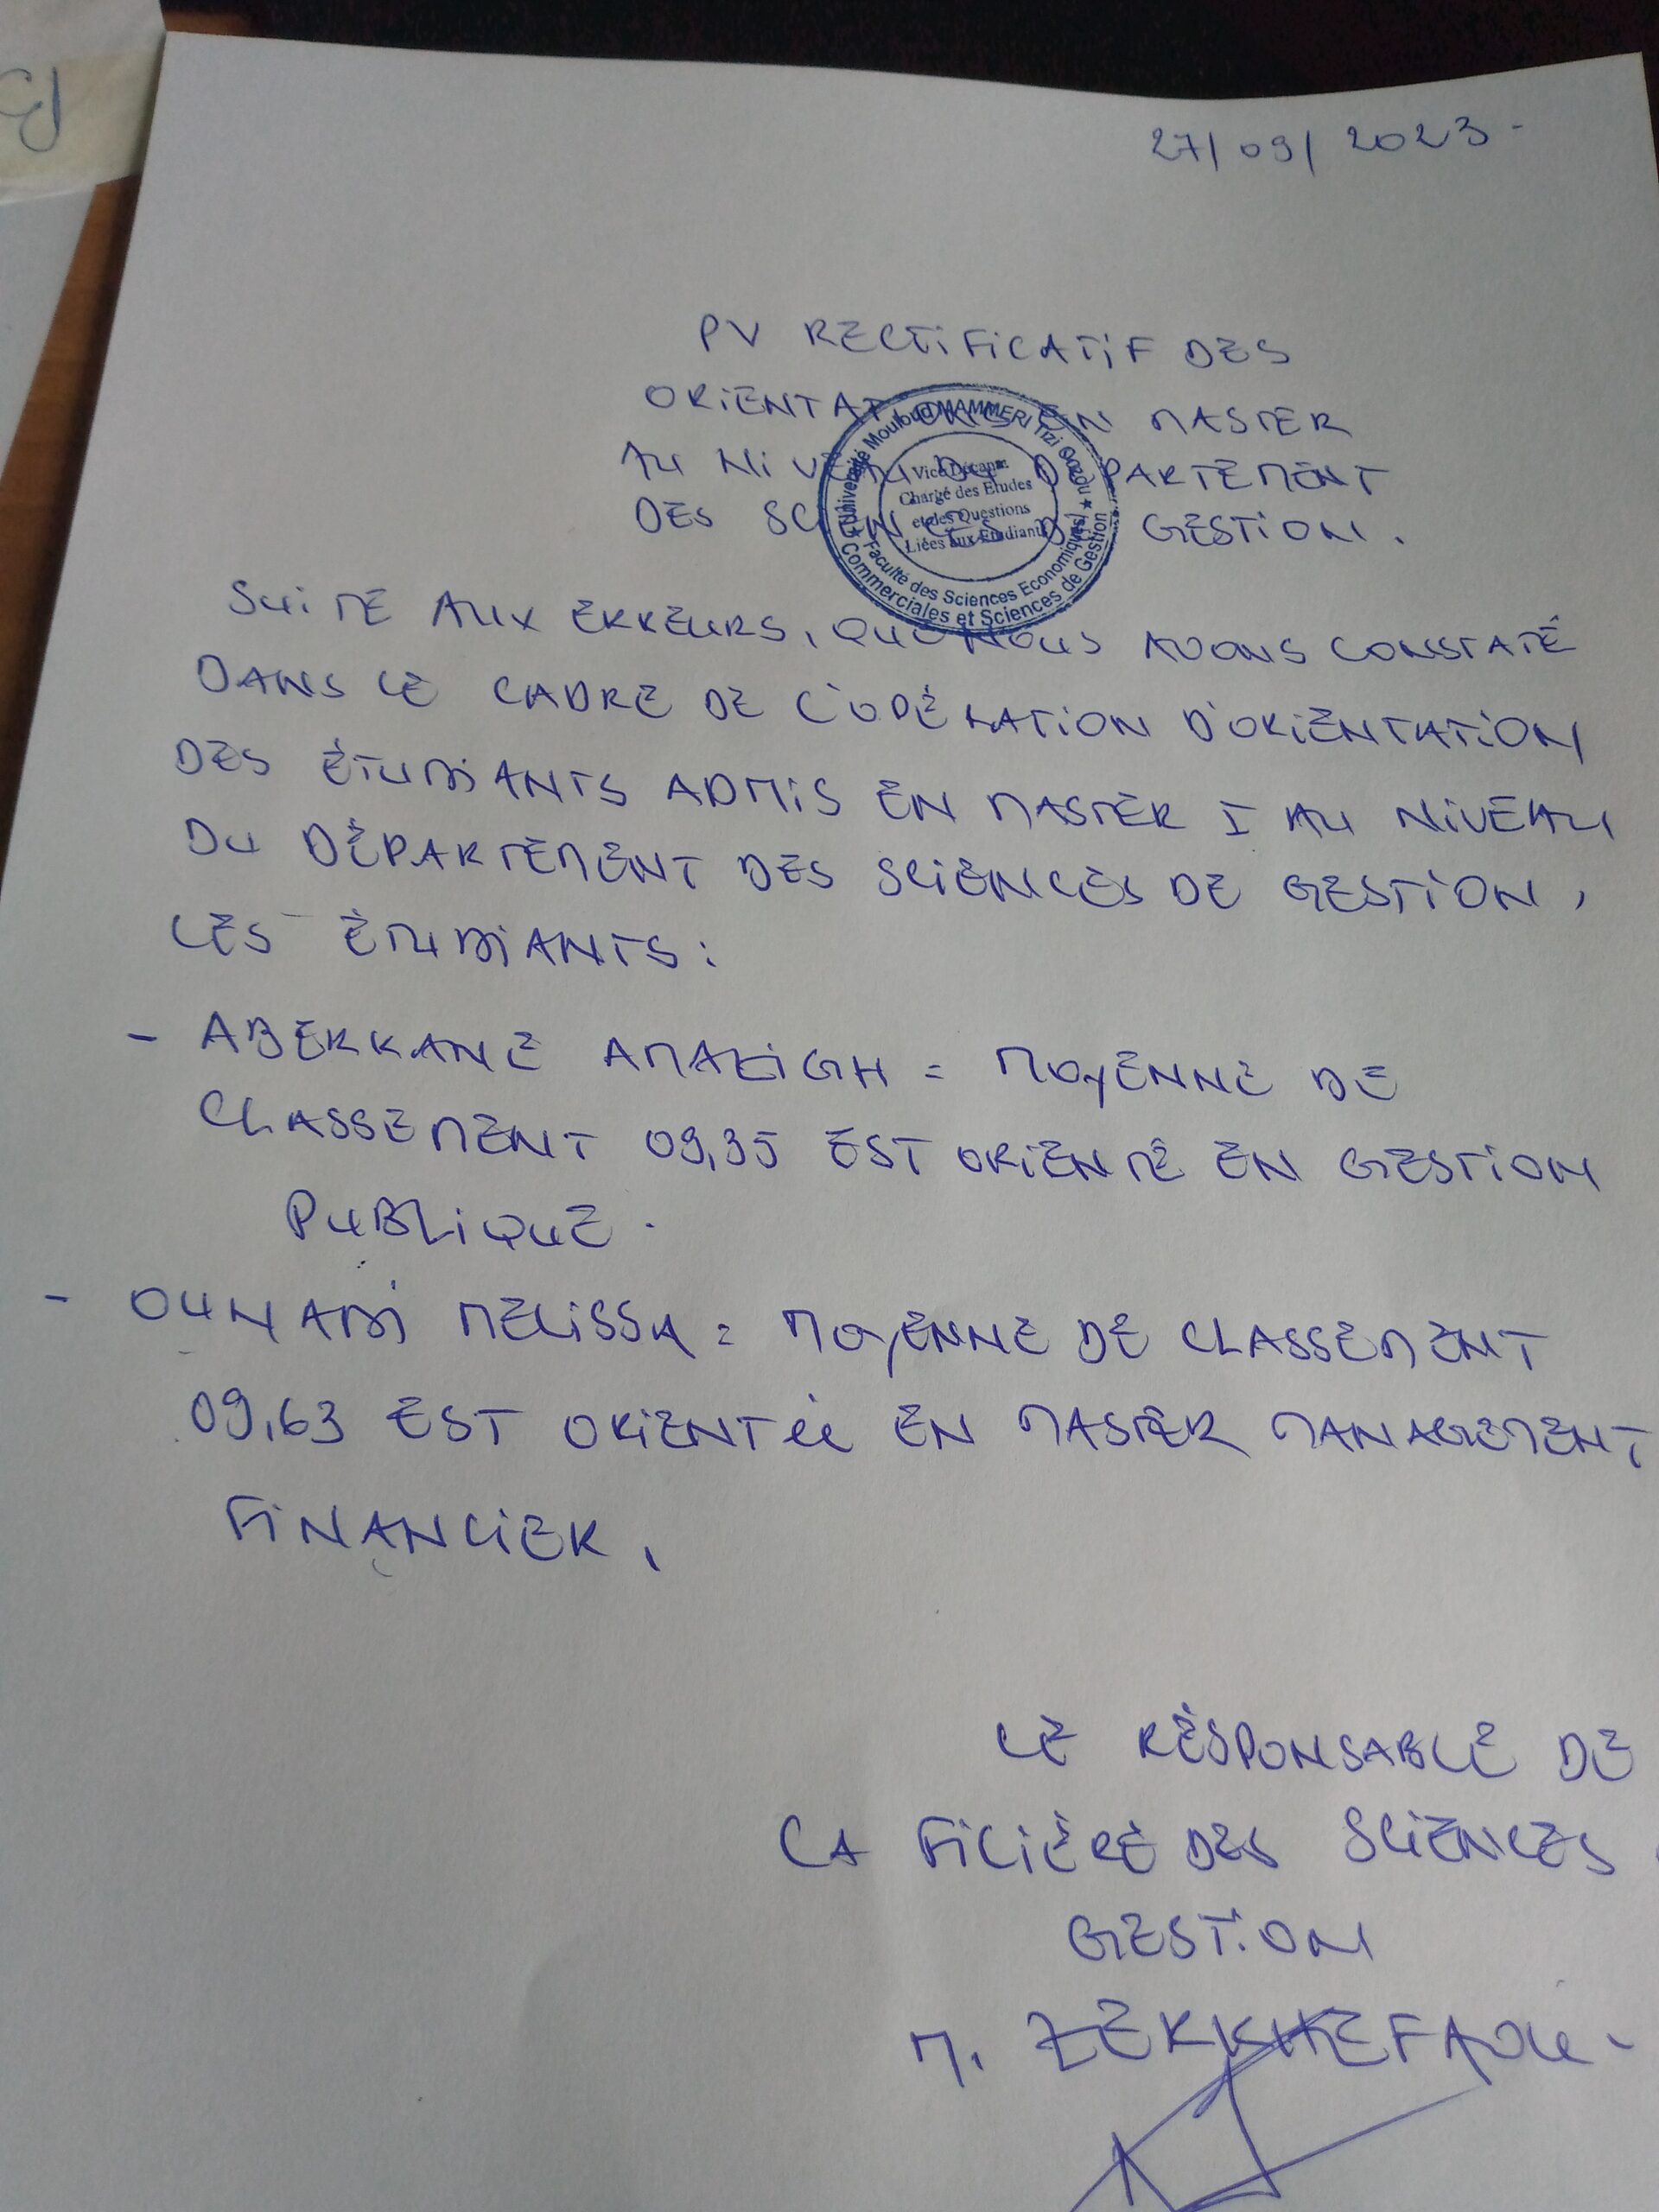 27/09/2023-
PV RECTIFICATIF DES
ORIENTATIONS EN MASTER
AU NIVEAU DU DÉPARTEMENT
DES SCIENCES DE GESTION.
Université Mouloud MAMMERI Tizi Ouzou
Vice Décanat
Chargé des Etudes
et des Questions
Liées aux Etudiants
Faculté des Sciences Economiques,
Commerciales et Sciences de Gestion
SUITE AUX ERREURS, QUE NOUS AVONS CONSTATÉ
DANS LE CADRE DE L'OPÉRATION D'ORIENTATION
DES ÉTUDIANTS ADMIS EN MASTER I AU NIVEAU
DU DÉPARTEMENT DES SCIENCES DE GESTION,
LES ÉTUDIANTS:
- ABERKANE AMAZIGH = MOYENNE DE
CLASSEMENT 09,35 EST ORIENTÉ EN GESTION
PUBLIQUE.
- OUHADI MELISSA = MOYENNE DE CLASSEMENT
09,63 EST ORIENTée EN MASTER MANAGEMENT
FINANCIER,
LE RESPONSABLE DE
LA FILIÈRE DES SCIENCES
GESTION
M. ZERKHEFAOUI